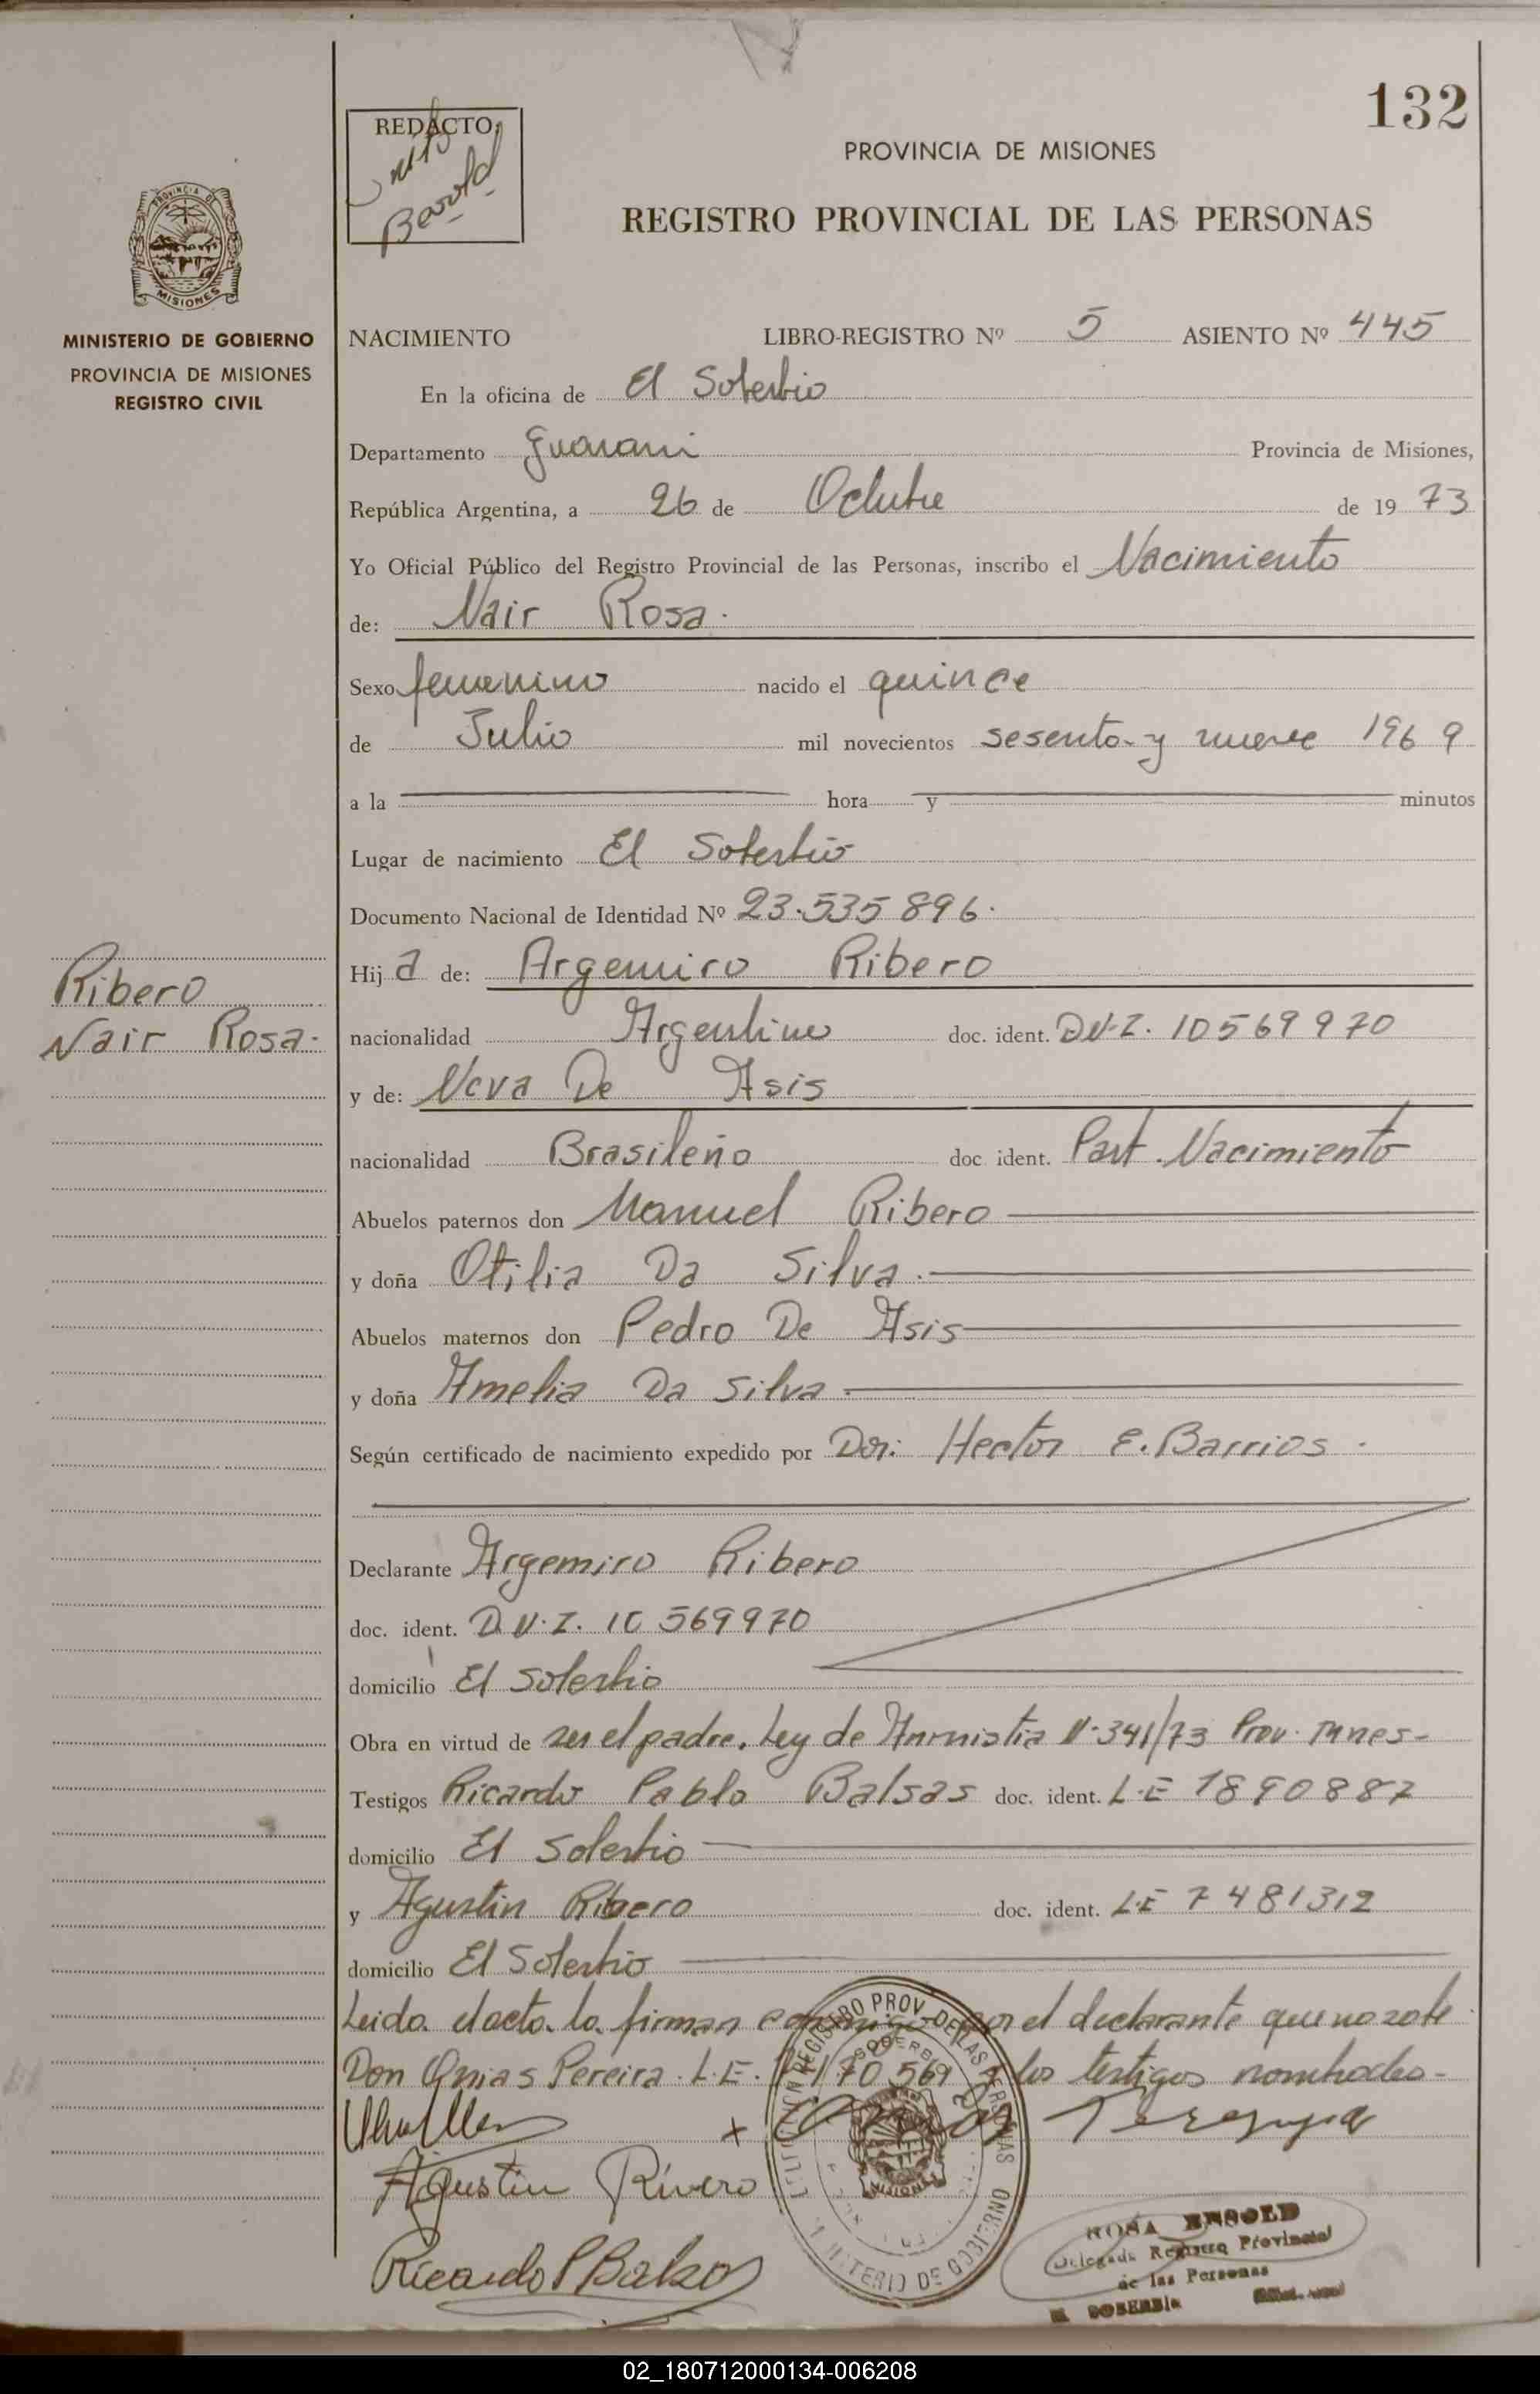 132
REDACTO
PROVINCIA DE MISIONES
REGISTRO PROVINCIAL DE LAS PERSONAS
PROVINCIA DE
MISIONES
MINISTERIO DE GOBIERNO
PROVINCIA DE MISIONES
REGISTRO CIVIL
NACIMIENTO LIBRO-REGISTRO Nº 5 ASIENTO Nº 445
En la oficina de El Soberbio
Departamento Guarani Provincia de Misiones,
República Argentina, a 26 de Octubre de 19 73
Yo Oficial Público del Registro Provincial de las Personas, inscribo el Nacimiento
de: Nair Rosa.
Sexo femenino nacido el quince
de Julio mil novecientos sesenta y nueve 1969
a la hora y minutos
Lugar de nacimiento El Soberbio
Documento Nacional de Identidad Nº 23.535896.
Ribero
Nair Rosa.
Hij a de: Argemiro Ribero
nacionalidad Argentino doc. ident. D.N.I. 10569970
y de: Neva De Asis
nacionalidad Brasileño doc. ident. Part. Nacimiento
Abuelos paternos don Manuel Ribero
y doña Otilia Da Silva.
Abuelos maternos don Pedro De Asis
y doña Amelia Da Silva.
Según certificado de nacimiento expedido por Dor: Hector E. Barrios.
Declarante Argemiro Ribero
doc. ident. D.N.I. 10 569970
domicilio El Soberbio
Obra en virtud de ser el padre. Ley de Amnistia N. 341/73 Prov. Mnes-
Testigos Ricardo Pablo Balsas doc. ident. L.E 1890887
domicilio El Soberbio
y Agustin Ribero doc. ident. L.E 7481312
domicilio El Soberbio
Leida el acta la firman conmigo por el declarante que no sabe
Don Onias Pereira. L.E. los testigos nombrados-
x Onias Pereyra
Agustin Rivero
Ricardo P Balsas
REGISTRO PROV. DE LAS PERSONAS
MINISTERIO DE GOBIERNO
MISIONES
ROSA
Delegada Registro Provincial
de las Personas
EL SOBERBIO
02_180712000134-006208